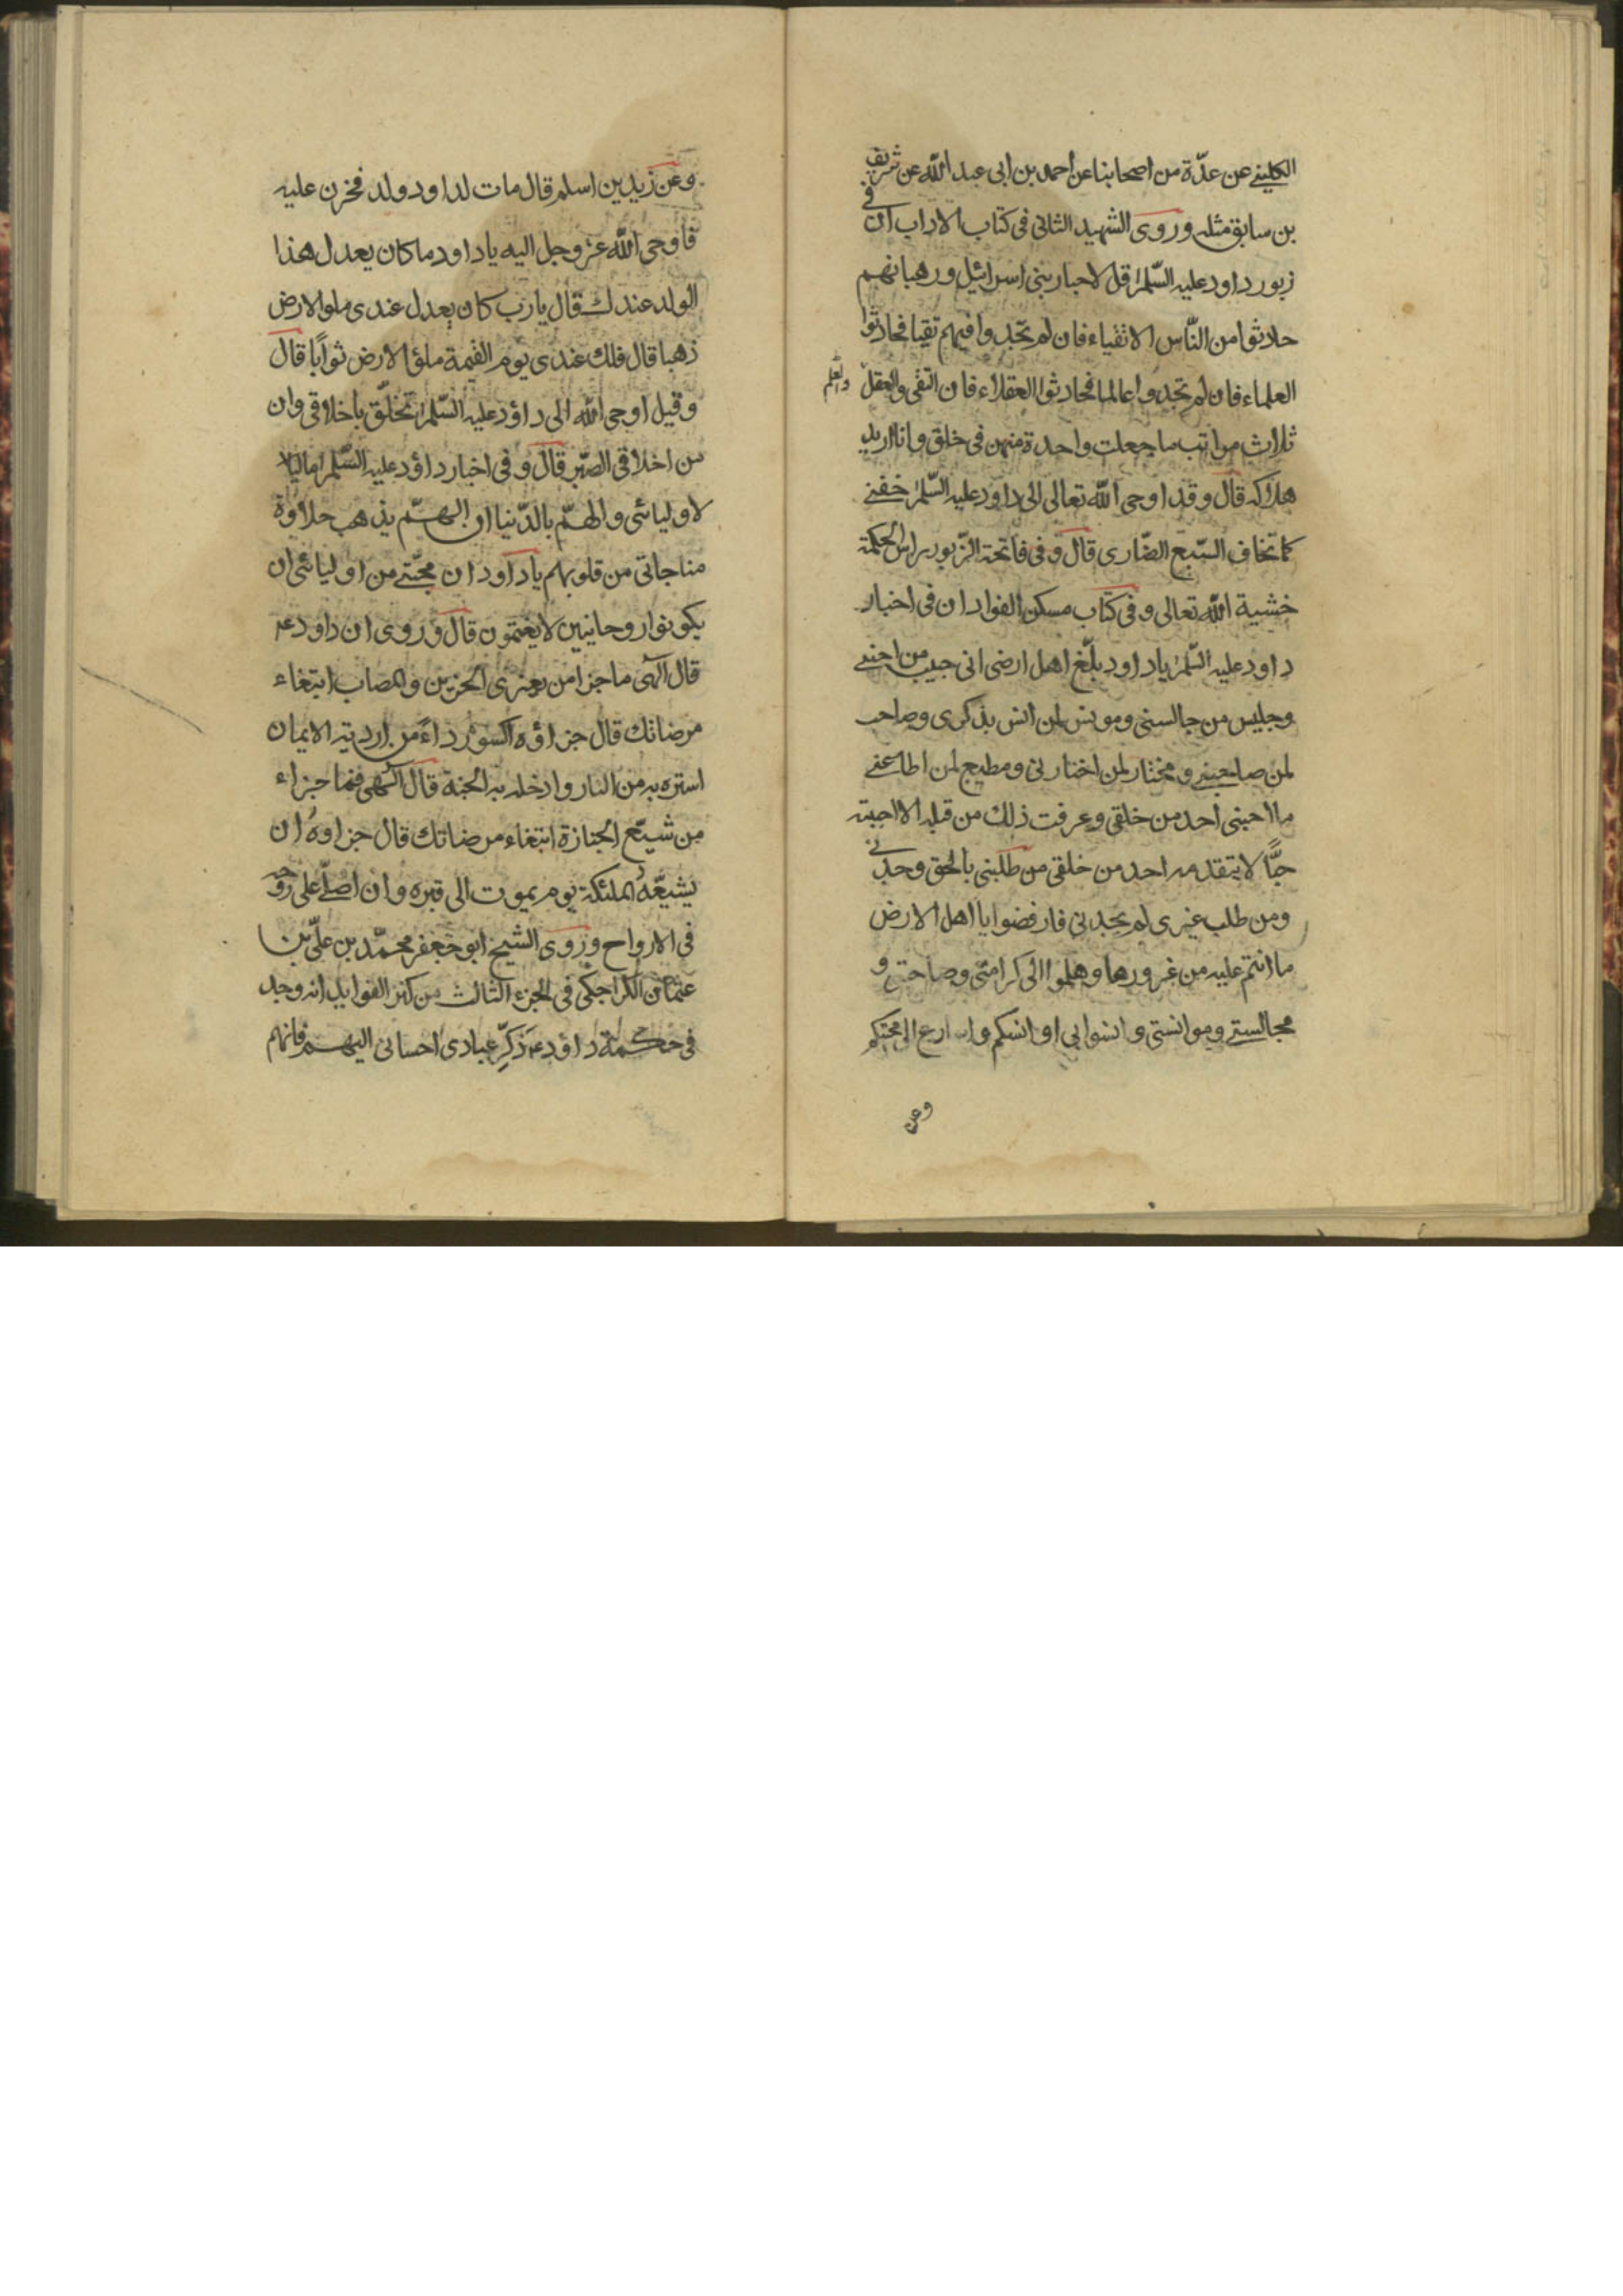 الكليني عن عدّة من اصحابنا عن احمد بن ابى عبد الله عن شريف
بن سابق مثله وروى الشهيد الثانى فى كتاب الاداب ان فى
زبور داود عليه السّلم قل لاحبار بنى اسرائيل ورهبانهم
حادثوا من النّاس الاتقياء فان لم تجدوا فيهم تقيا فحادثوا
العلماء فان لم تجدوا عالما فحادثوا العقلاء فان التقى والعقل والعلم
ثلاث مراتب ما جعلت واحدة منهن فى خلق وانا اريد
هلاكه قال وقد اوحى الله تعالى الى داود عليه السّلم خفنى
كما تخاف السّبع الضّارى قال وفى فاتحة الزّبور راس الحكمة
خشية الله تعالى وفى كتاب مسكن الفواد ان فى اخبار
داود عليه السّلم ياداود بلّغ اهل ارضى انى حبيب من احبنى
وجليس من جالسنى ومونس لمن انس بذكرى وصاحب
لمن صاحبنى ومختار لمن اختارنى ومطيع لمن اطاعنى
ما احبنى احد من خلقى وعرفت ذلك من قبله الا احببته
حبًّا لا يتقدمه احد من خلقى من طلبنى بالحق وجدنى
ومن طلب غيرى لم يجدنى فارفضوا يا اهل الارض
ما انتم عليه من غرورها وهلموا الى كرامتى وصاحبتى و
مجالستى وموانستى وانسوا بى اوانسكم واسارع الى محبتكم
وعن
وعن زيد بن اسلم قال مات لداود ولد فحزن عليه
فاوحى الله عز وجل اليه ياداود ما كان يعدل هذا
الولد عندك قال يارب كان يعدل عندى ملو الارض
ذهبا قال فلك عندى يوم القيمة ملؤ الارض ثوابًا قال
وقيل اوحى الله الى داؤد عليه السّلم تخلّق باخلاقى وان
من اخلاقى الصّبر قال وفى اخبار داؤد عليه السّلم ما
لاوليائى والهمّ بالدّنيا ان الهمّ يذهب حلاوة
مناجاتى من قلوبهم ياداود ان محبّتى من اوليائى ان
يكونوا روحانيين لا يغتمون قال وروى ان داود ع
قال الهى ما جزا من يعزى الحزين والمصاب ابتغاء
مرضاتك قال جزاؤه اكسوه رداءً من اردية الايمان
استره به من النار وادخله به الجنة قال الهى فما جزاء
من شيّع الجنازة ابتغاء مرضاتك قال جزاوه ان
يشيعه الملئكة يوم يموت الى قبره وان اصلّى على روحه
فى الارواح وروى الشيخ ابو جعفر محمّد بن علىّ بن
عثمان الكراجكى فى الجزء الثالث من كنز الفوايد انه وجد
فى حكمة داؤد ع ذكّر عبادى احسانى اليهم فانهم